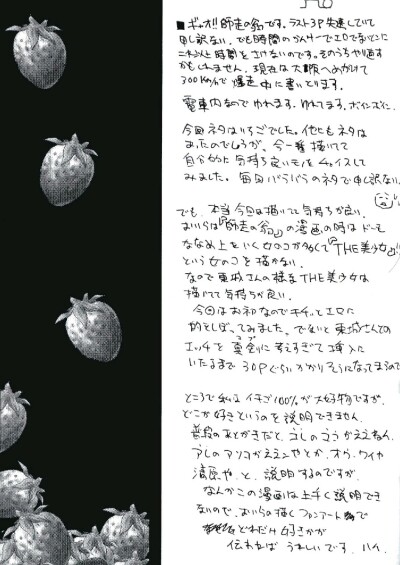 ■ギャオ!!師走の翁です。ラスト3P失速していて
申し訳ない。でも時間の
これ以上時間をさけないのです。そのうちやり直す
かもしれません。現在は大阪へむけて
300km/hで爆走中に書いとります。
電車内なのでゆれます。ゆれてます。
今回ネタはいちごでした。他にもネタは
あったのでしょうが、今一番描いてて
自分がもっとも気持ち良いモノをチョイスして
みました。毎回バラバラのネタで申し訳ない。
でも、本当今回は描いてて気持ちが良い。
おいらは『師走の翁』の漫画の時はドーモ
ななめ上をいく女のコが多くて『THE美少女』
という女のコを描かない。
なので東城さんの様なTHE美少女は
描いてて気持ちが良い。
今回はお初なのでキチッとエロに
的をしぼってみました。でないと東城さんでの
エッチを真剣に考えすぎて挿入に
いたるまで30Pぐらいかかりそうになってまうので
ところで私はイチゴ100%が大好物ですが、
どこが好きというのを説明できません。
普段のあとがきだと、コレのココがええねん、
アレのアソコがええンやとか、オウ、ワイや
清原や、と、説明するのですが、
なんかこの漫画は上手く説明でき
ないので、おいらの描くファンアートで
どれだけ好きかが
伝わればうれしいです。ハイ。